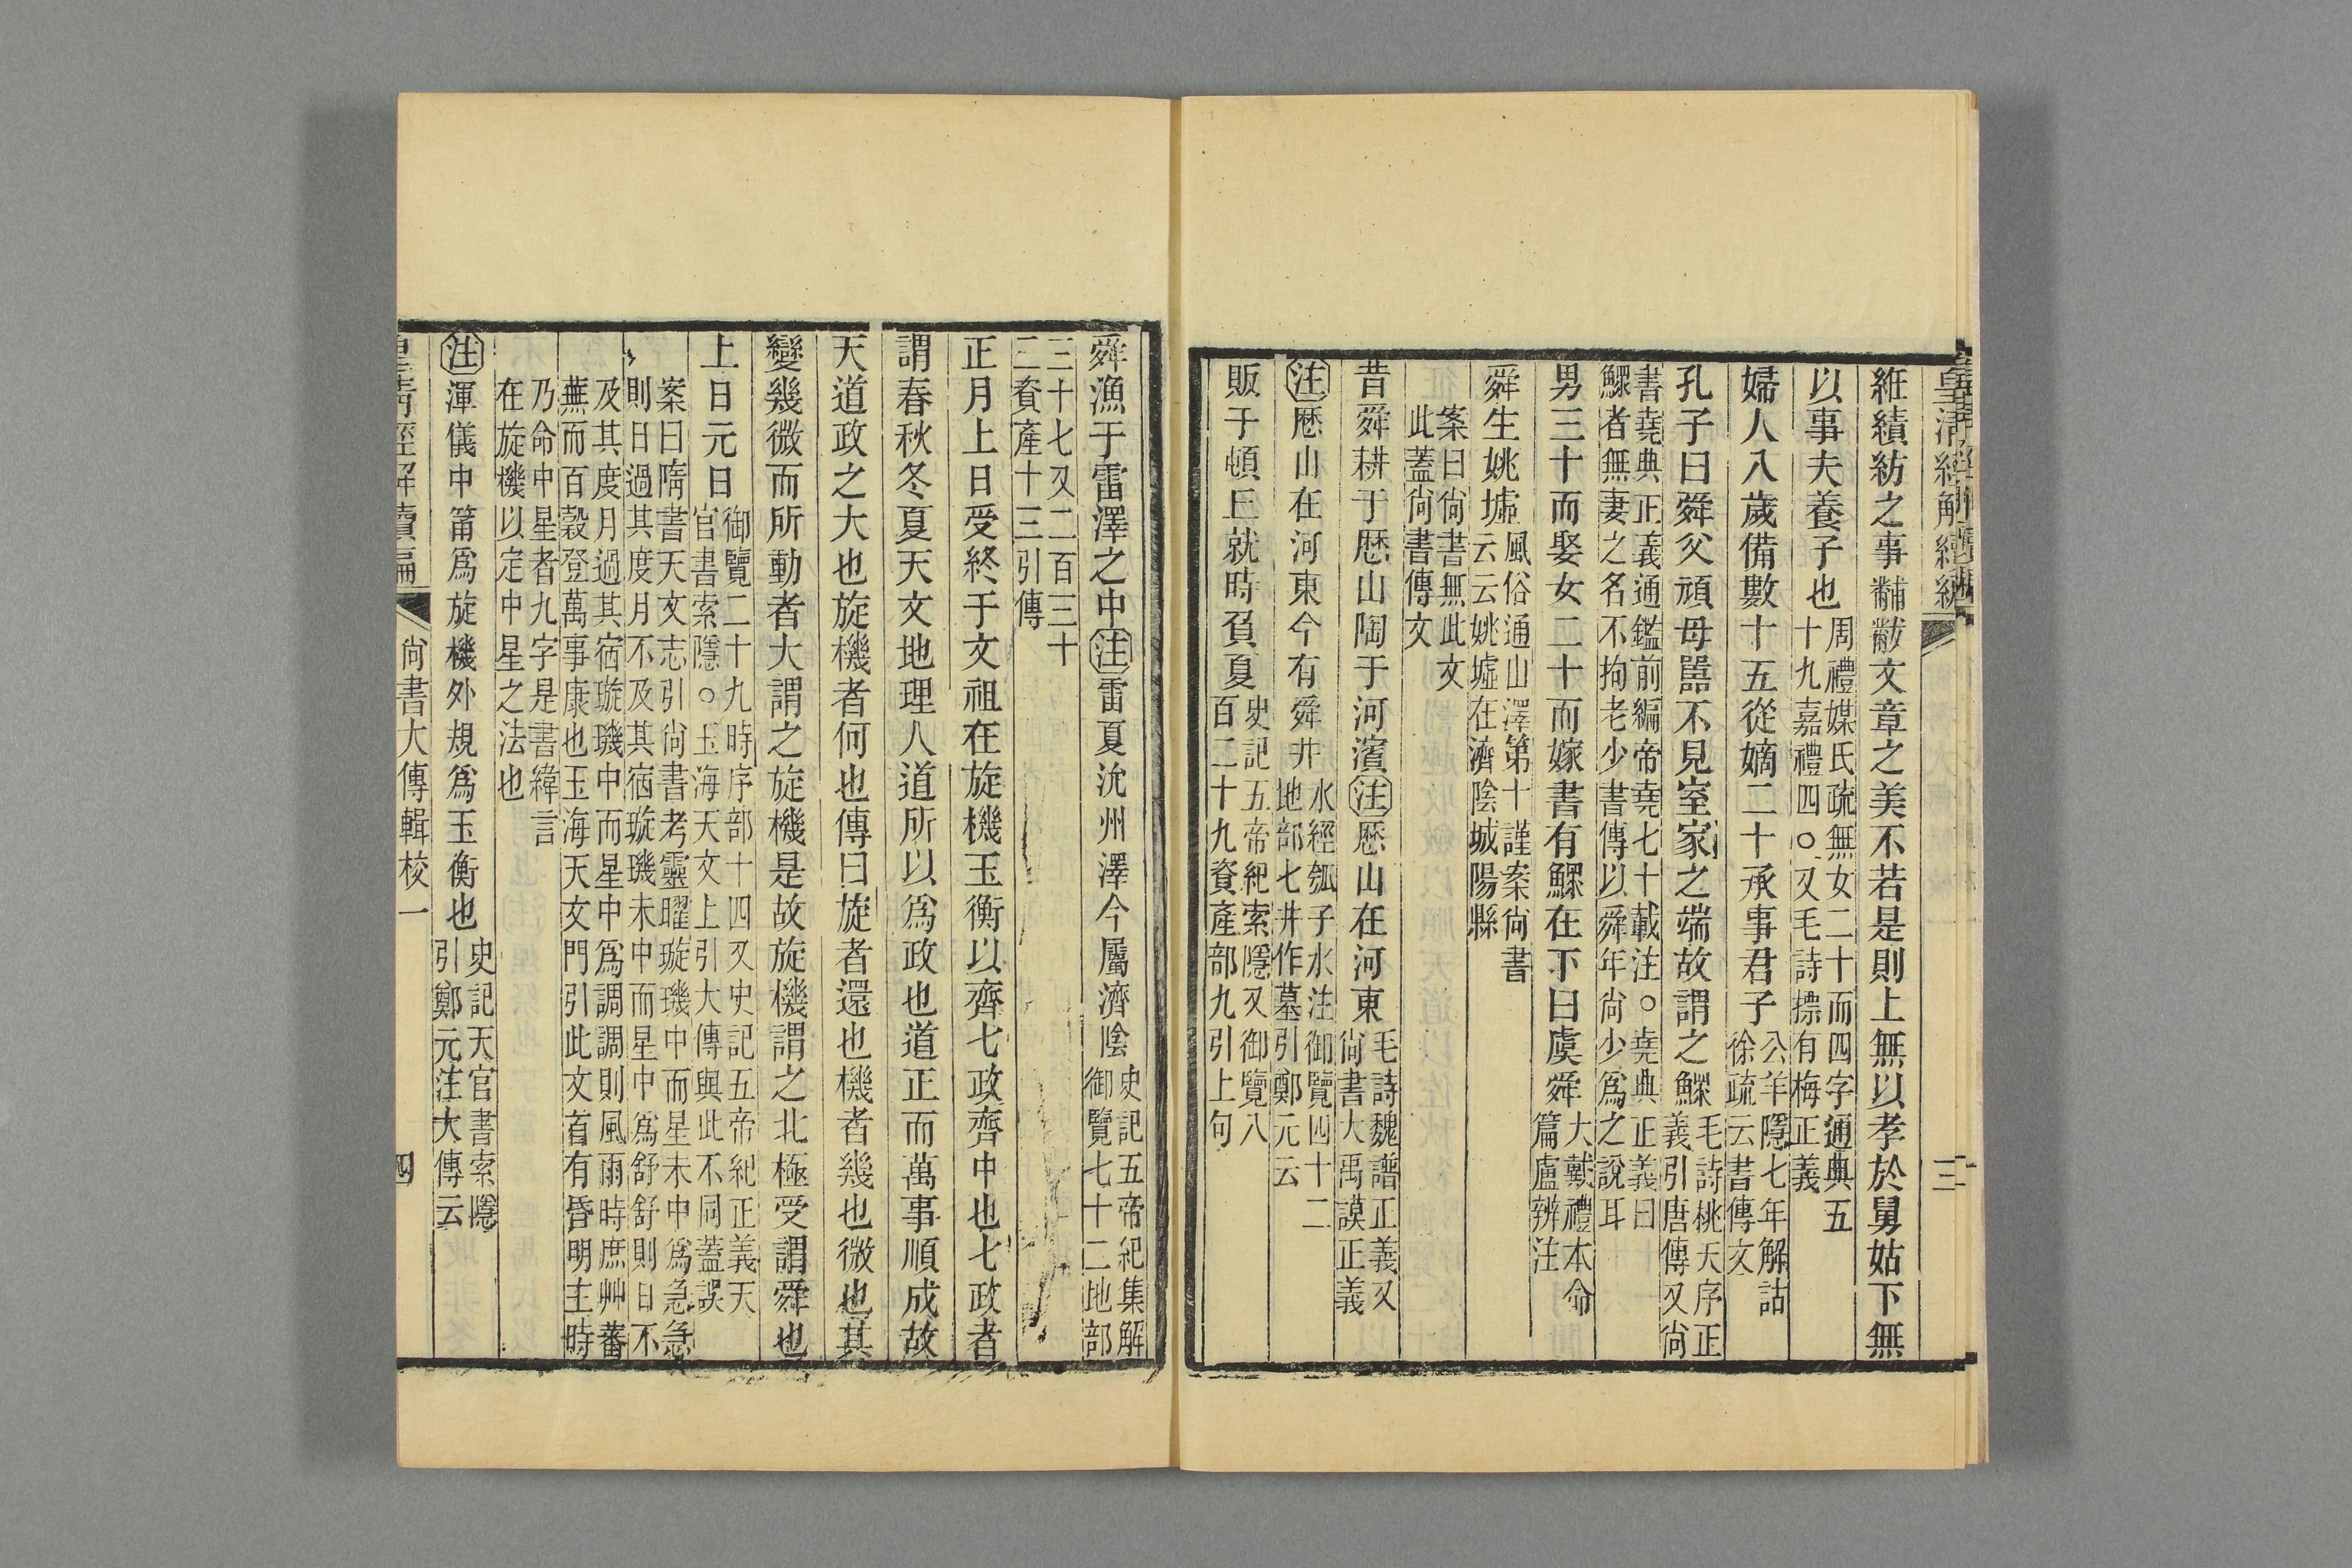 皇清經解續編
三
維績紡之事黼黻文章之美不若是則上無以孝於舅姑下無
以事夫養子也周禮媒氏疏無女二十而四字通典五十九嘉禮四○又毛詩摽有梅正義
婦人八歲備數十五從嫡二十承事君子公羊隱七年解詁徐疏云書傳文
孔子曰舜父頑母嚚不見室家之端故謂之鰥毛詩桃夭序正義引唐傳又尙
書堯典正義通鑑前編帝堯七十載注○堯典正義曰鰥者無妻之名不拘老少書傳以舜年尙少爲之說耳
男三十而娶女二十而嫁書有鰥在下曰虞舜大戴禮本命篇盧辨注
舜生姚墟風俗通山澤第十謹案尙書云云姚墟在濟陰城陽縣
案曰尙書無此文此蓋尙書傳文
昔舜耕于歷山陶于河濱注歷山在河東毛詩魏譜正義又尙書大禹謨正義
注歷山在河東今有舜井水經瓠子水注御覽四十二地部七井作墓引鄭元云
販于頓丘就時負夏史記五帝紀索隱又御覽八百二十九資產部九引上句
舜漁于雷澤之中注雷夏沇州澤今屬濟陰史記五帝紀集解御覽七十二地部
三十七又二百三十三資產十三引傳
正月上日受終于文祖在旋機玉衡以齊七政齊中也七政者
謂春秋冬夏天文地理人道所以爲政也道正而萬事順成故
天道政之大也旋機者何也傳曰旋者還也機者幾也微也其
變幾微而所動者大謂之旋機是故旋機謂之北極受謂舜也
上日元日御覽二十九時序部十四又史記五帝紀正義天官書索隱○玉海天文上引大傳與此不同蓋誤
案曰隋書天文志引尙書考靈曜璇璣中而星未中爲急急則日過其度月不及其宿璇璣未中而星中爲舒舒則日不
及其度月過其宿璇璣中而星中爲調調則風雨時庶艸蕃蕪而百穀登萬事康也玉海天文門引此文首有昏明主時
乃命中星者九字是書緯言在旋機以定中星之法也
注渾儀中筩爲旋機外規爲玉衡也史記天官書索隱引鄭元注大傳云
皇清經解續編
尙書大傳輯校一
四